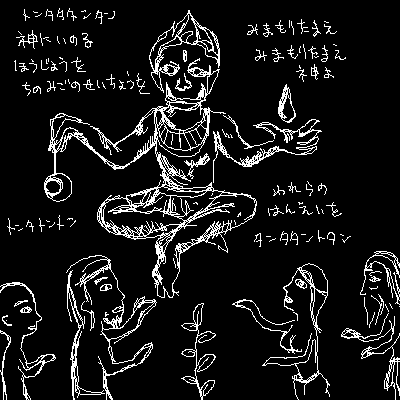 トンタタタンタン
神にいのる
ほうじょうを
ちのみごのせいちょうを
みまもりたまえ
みまもりたまえ
神よ
われらの
はんえいを
トンタトントン
タンタタントタン